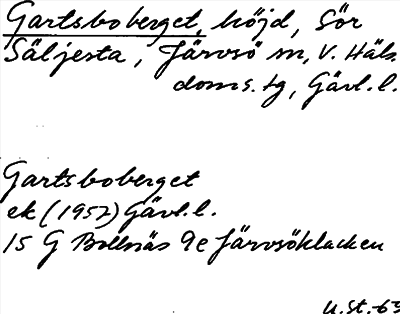 Gartsboberget, höjd, Sör
Säljesta, Järvsö sn, V. Häls.
doms. tg, Gävl. l.
Gartsboberget
ek (1952) Gävl. l.
15 G Bollnäs 9e Järvsöklacken
U.St.-63